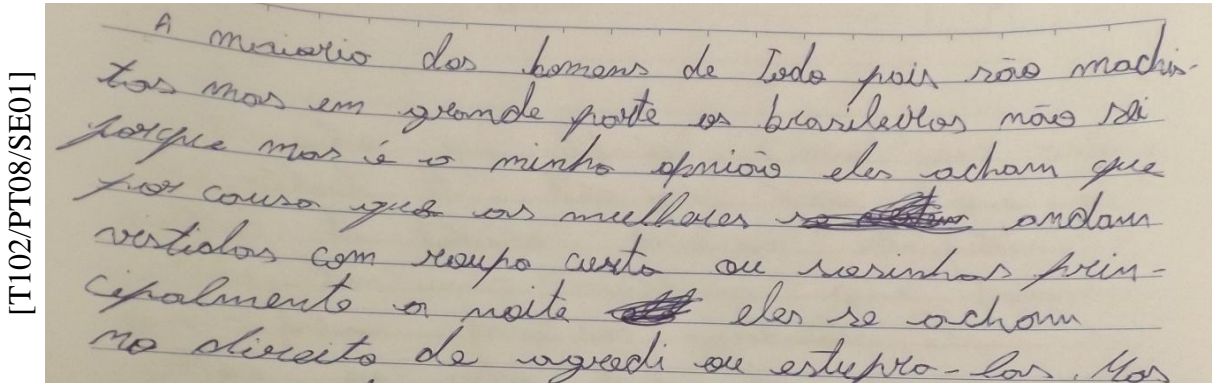 [T102/PT08/SE01]
A miniario dos homens de todo pais são machis-
tas mas em grande parte os brasileiros não sei
porque mas é a minha opnião eles acham que
por causa que as mulheres andam
vestidas com roupa curta ou sosinhas prin-
cipalmente a noite eles se acham
no direito de agredi ou estupra-las. Mas